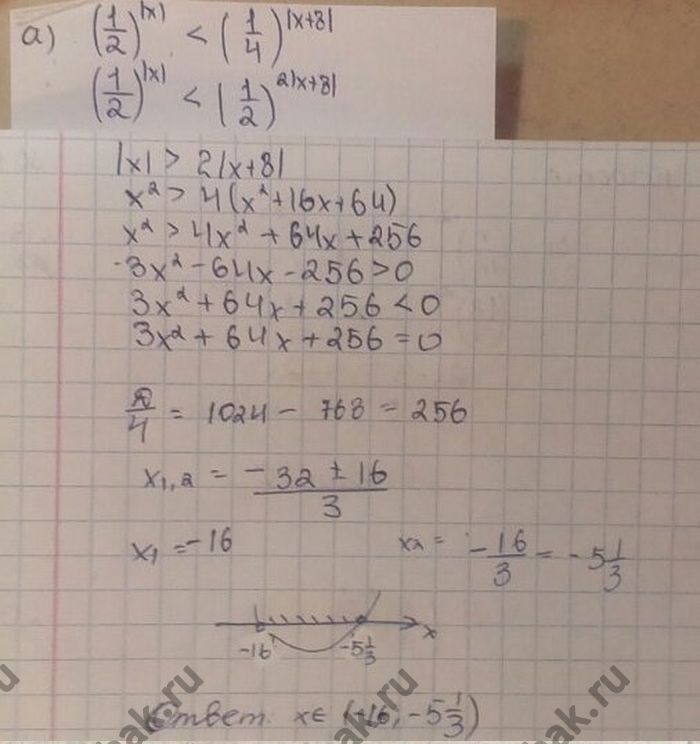 а) (1/2)^|x| < (1/4)^|x+8|
(1/2)^|x| < (1/2)^2|x+8|
|x| > 2|x+8|
x² > 4(x²+16x+64)
x² > 4x² + 64x + 256
-3x² - 64x - 256 > 0
3x² + 64x + 256 < 0
3x² + 64x + 256 = 0
D/4 = 1024 - 768 = 256
x1,2 = (-32 ± 16)/3
x1 = -16 x2 = -16/3 = -5 1/3
x
-16 -5 1/3
Ответ: x∈ (-16; -5 1/3)
ak.ru